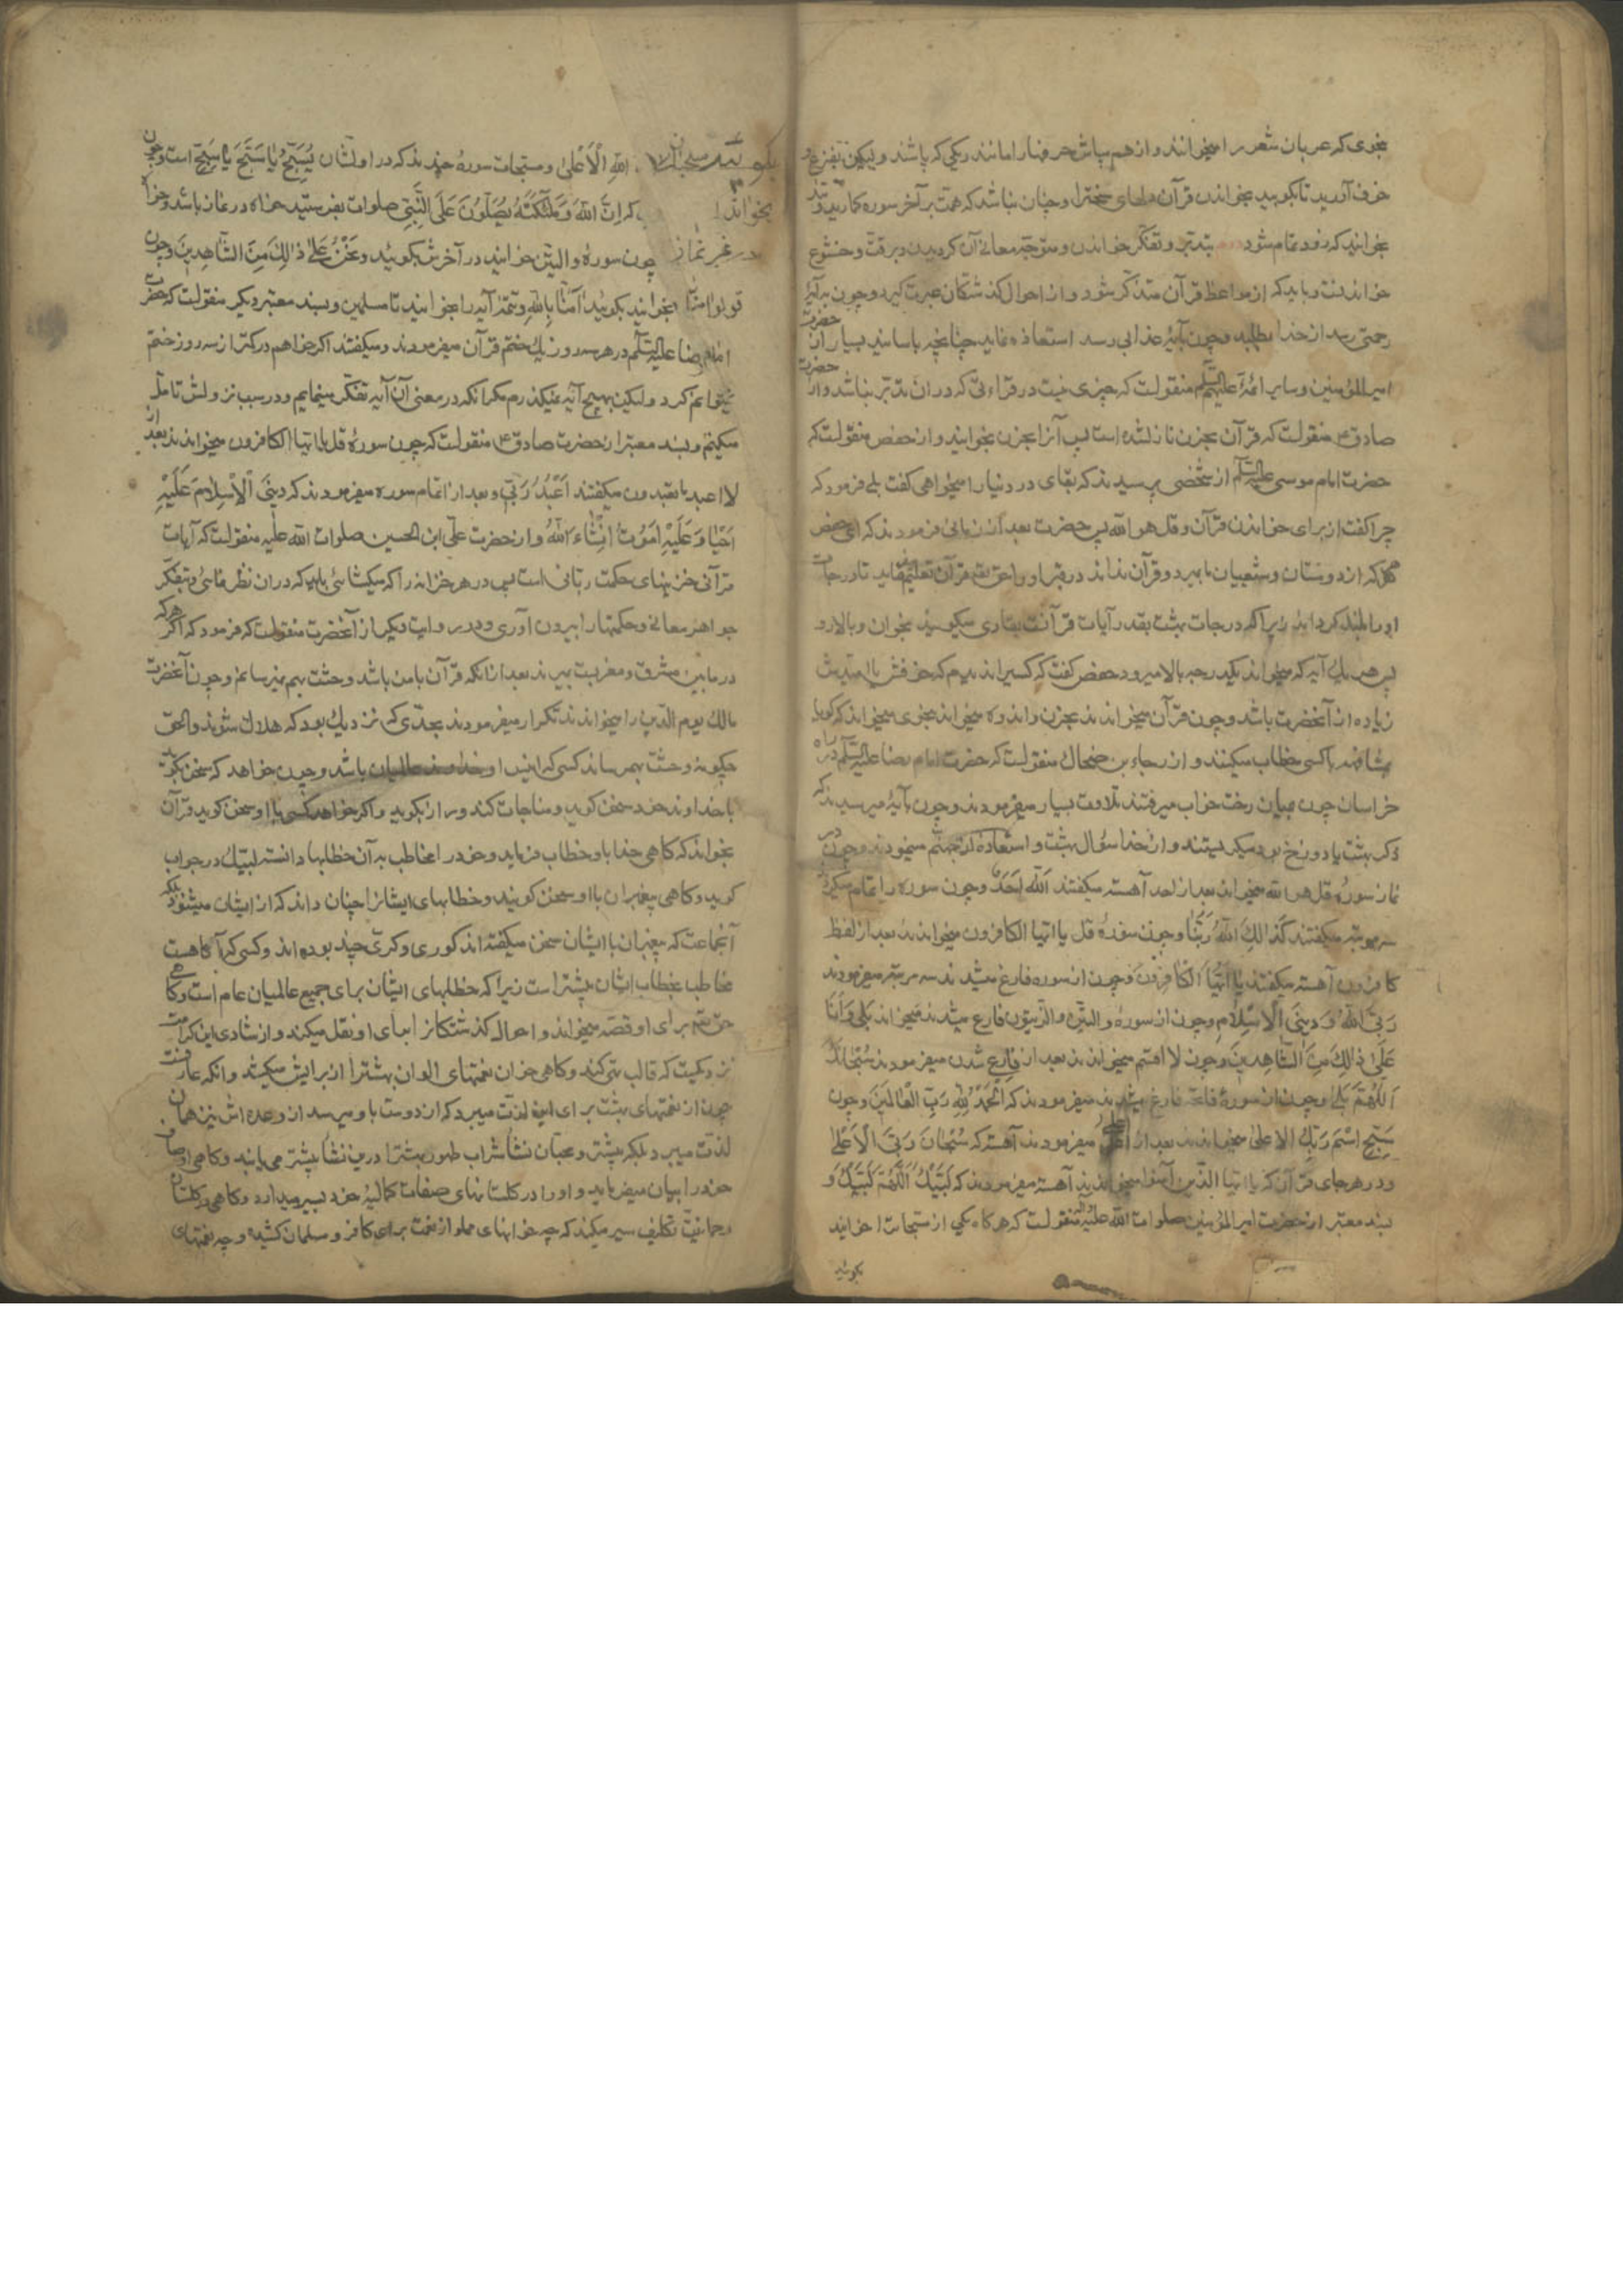 بنحوی که عربان شعر را میخوانند و از هم مپاش حرفها را مانند ریکی که پاشند ولیکن بفزع و
خوف آورید تا بکوبید بخواندن قرآن دلهای سخت را و چنان نباشد که همت بر آخر سوره کمارید و تند
بخوانید که زود تمام شود بتدبر و تفکر خواندن و متوجه معانی آن کردیدن و برقت و خشوع
خواندنست و باید که از مواعظ قرآن متذکر شود و از احوال کذشتکان عبرت کیرد و چون بر آیهٔ
رحمتی رسد از خدا بطلبد و چون بآیهٔ عذابی رسد استعاذه نماید چنانچه باسانید بسیار از حضرت
امیرالمؤمنین و سایر ائمه علیهم السلم منقولست که چیزی نیست در قراءتی که در آن تدبر نباشد و از حضرت
صادق ع منقولست که قرآن بحزن نازلشده است پس آنرا بحزن بخوانید و از حفص منقولست که
حضرت امام موسی علیه السلم از شخصی پرسیدند که بقای در دنیا را میخواهی کفت بلی فرمود که
چرا کفت از برای خواندن قرآن و قل هو الله پس حضرت بعد از زمانی فرمودند که ای حفص
هر که از دوستان و شیعیان ما بمیرد و قرآن نداند در قبر او را حق تعالی قرآن تعلیم نماید تا درجات
او را بلند کرداند زیرا که درجات بهشت بقدر آیات قرآنست بقاری میکویند بخوان و بالا رو
پس هر یک آیه که میخواند یکدرجه بالا میرود حفص کفت که کسیرا ندیدم که خوفش یا امیدش
زیاده از آنحضرت باشد و چون قرآن میخواندند بحزن و اندوه میخواندند بنحوی میخواندند که کویا
مشافهه باکسی خطاب میکنند و از رجاء بن ضحاک منقولست که حضرت امام رضا علیه السلم در راه
خراسان چون بمیان رخت خواب میرفتند تلاوت بسیار میفرمودند و چون بآیهٔ میرسیدند که
ذکر بهشت یا دوزخ بود میکریستند و از خدا سؤال بهشت و استعاذه از جهنم مینمودند و چون در
نماز سورهٔ قل هو الله میخواندند بعد از احد آهسته میکفتند الله احد و چون سوره را تمام میکردند
سه مرتبه میکفتند کذلک الله ربنا و چون سورهٔ قل یا ایها الکافرون میخواندند بعد از لفظ
کافرون آهسته میکفتند یا ایها الکافرون و چون از سوره فارغ میشدند سه مرتبه میفرمودند
ربی الله و دینی الاسلام و چون از سورهٔ والتین و الزیتون فارغ میشدند میخواندند بلی و انا
علی ذلک من الشاهدین و چون لا اقسم میخواندند بعد از فارغ شدن میفرمودند سبحانک
اللهم بلی و چون از سورهٔ فاتحه فارغ میشدند میفرمودند که الحمد لله رب العالمین و چون
سبح اسم ربک الاعلی میخواندند بعد از اعلی میفرمودند آهسته که سبحان ربی الاعلی
و در هر جای قرآن که یا ایها الذین آمنوا میخواندند آهسته میفرمودند که لبیک اللهم لبیک و
بسند معتبر از حضرت امیرالمؤمنین صلوات الله علیه منقولست که هر کاه یکی از مسبحات را خوانید
بکوئید
بکوئید سبحان الله الاعلی و مسبحات سورهٔ چندند که در اولشان یسبح یا سبح یا سبح است و چون
بخوانید که ان الله و ملئکته یصلون علی النبی صلوات بفرستید خواه در نماز باشد و خواه
در غیر نماز چون سورهٔ والتین خوانید در آخرش بکوئید و نحن علی ذلک من الشاهدین و چون
قولوا آمنا بخوانید بکوئید آمنا بالله و تتمهٔ آیه را بخوانید تا مسلمین و بسند معتبر دیکر منقولست که حضرت
امام رضا علیه السلم در هر سه روز یک ختم قرآن میفرمودند و میکفتند اکر خواهم در کمتر از سه روز ختم
میتوانم کرد ولیکن بهیچ آیه نمیکذرم مکر آنکه در معنی آن آیه تفکر مینمایم و در سبب نزولش تامل
میکنم و بسند معتبر از حضرت صادق ع منقولست که چون سورهٔ قل یا ایها الکافرون میخواندند بعد از
لا اعبد ما تعبدون میکفتند اعبد ربی و بعد از اتمام سوره میفرمودند که دینی الاسلام علیه
احیا و علیه اموت انشاء الله و از حضرت علی ابن الحسین صلوات الله علیه منقولست که آیات
قرآنی خزینهای حکمت ربانی است پس در هر خزانه را که میکشائی باید که در آن نظر نمائی و بتفکر
جواهر معانی و حکمتها را بیرون آوری و در روایت دیکر از آنحضرت منقولست که فرمود که اکر هر که
در مابین مشرق و مغربست بمیرند بعد از آنکه قرآن با من باشد وحشت بهم نمیرسانم و چون آنحضرت
مالک یوم الدین را میخواندند تکرار میفرمودند بحدی که نزدیک بود که هلاک شوند و الحق
چکونه وحشت بهم رساند کسی که انیس او خداوند عالمیان باشد و چون خواهد که سخن بکوید
با خداوند خود سخن کوید و مناجات کند و راز بکوید و اکر خواهد کسی با او سخن کوید قرآن
بخواند که کاهی خدا باو خطاب فرماید و خود را مخاطب به آن خطابها دانسته لبیک در جواب
کوید و کاهی پیغمبران با او سخن کویند و خطابهای ایشانرا چنان داند که از ایشان میشنود بلکه
آنجماعت که پیغمبران با ایشان سخن میکفته اند کوری و کری چند بوده اند و کسی که آکاهست
مخاطب بخطاب ایشان بیشتر است زیرا که خطابهای ایشان برای جمیع عالمیان عام است و کاهی
حق تعالی برای او قصه میخواند و احوال کذشتکانرا برای او نقل میکند و از شادی این کرامت
نزدیکست که قالب تهی کند و کاهی خوان نعمتهای الوان بهشت را از برایش میکشد و آنکه عارفست
چون از نعمتهای بهشت برای این لذت میبرد که از دوست باو میرسد از وعده اش نیز همان
لذت میبرد بلکه بیشتر و محبان نشأ شراب طهور بهشت را در این نشأ بیشتر می یابند و کاهی اوصاف
خود را بیان میفرماید و او را در کلستانهای صفات کمالیهٔ خود بسیر میدارد و کاهی در کلستان
رحمانیت تکلیف سیر میکند که چه خوانهای مملو از نعمت برای کافر و مسلمان کشیده و چه نعمتهای